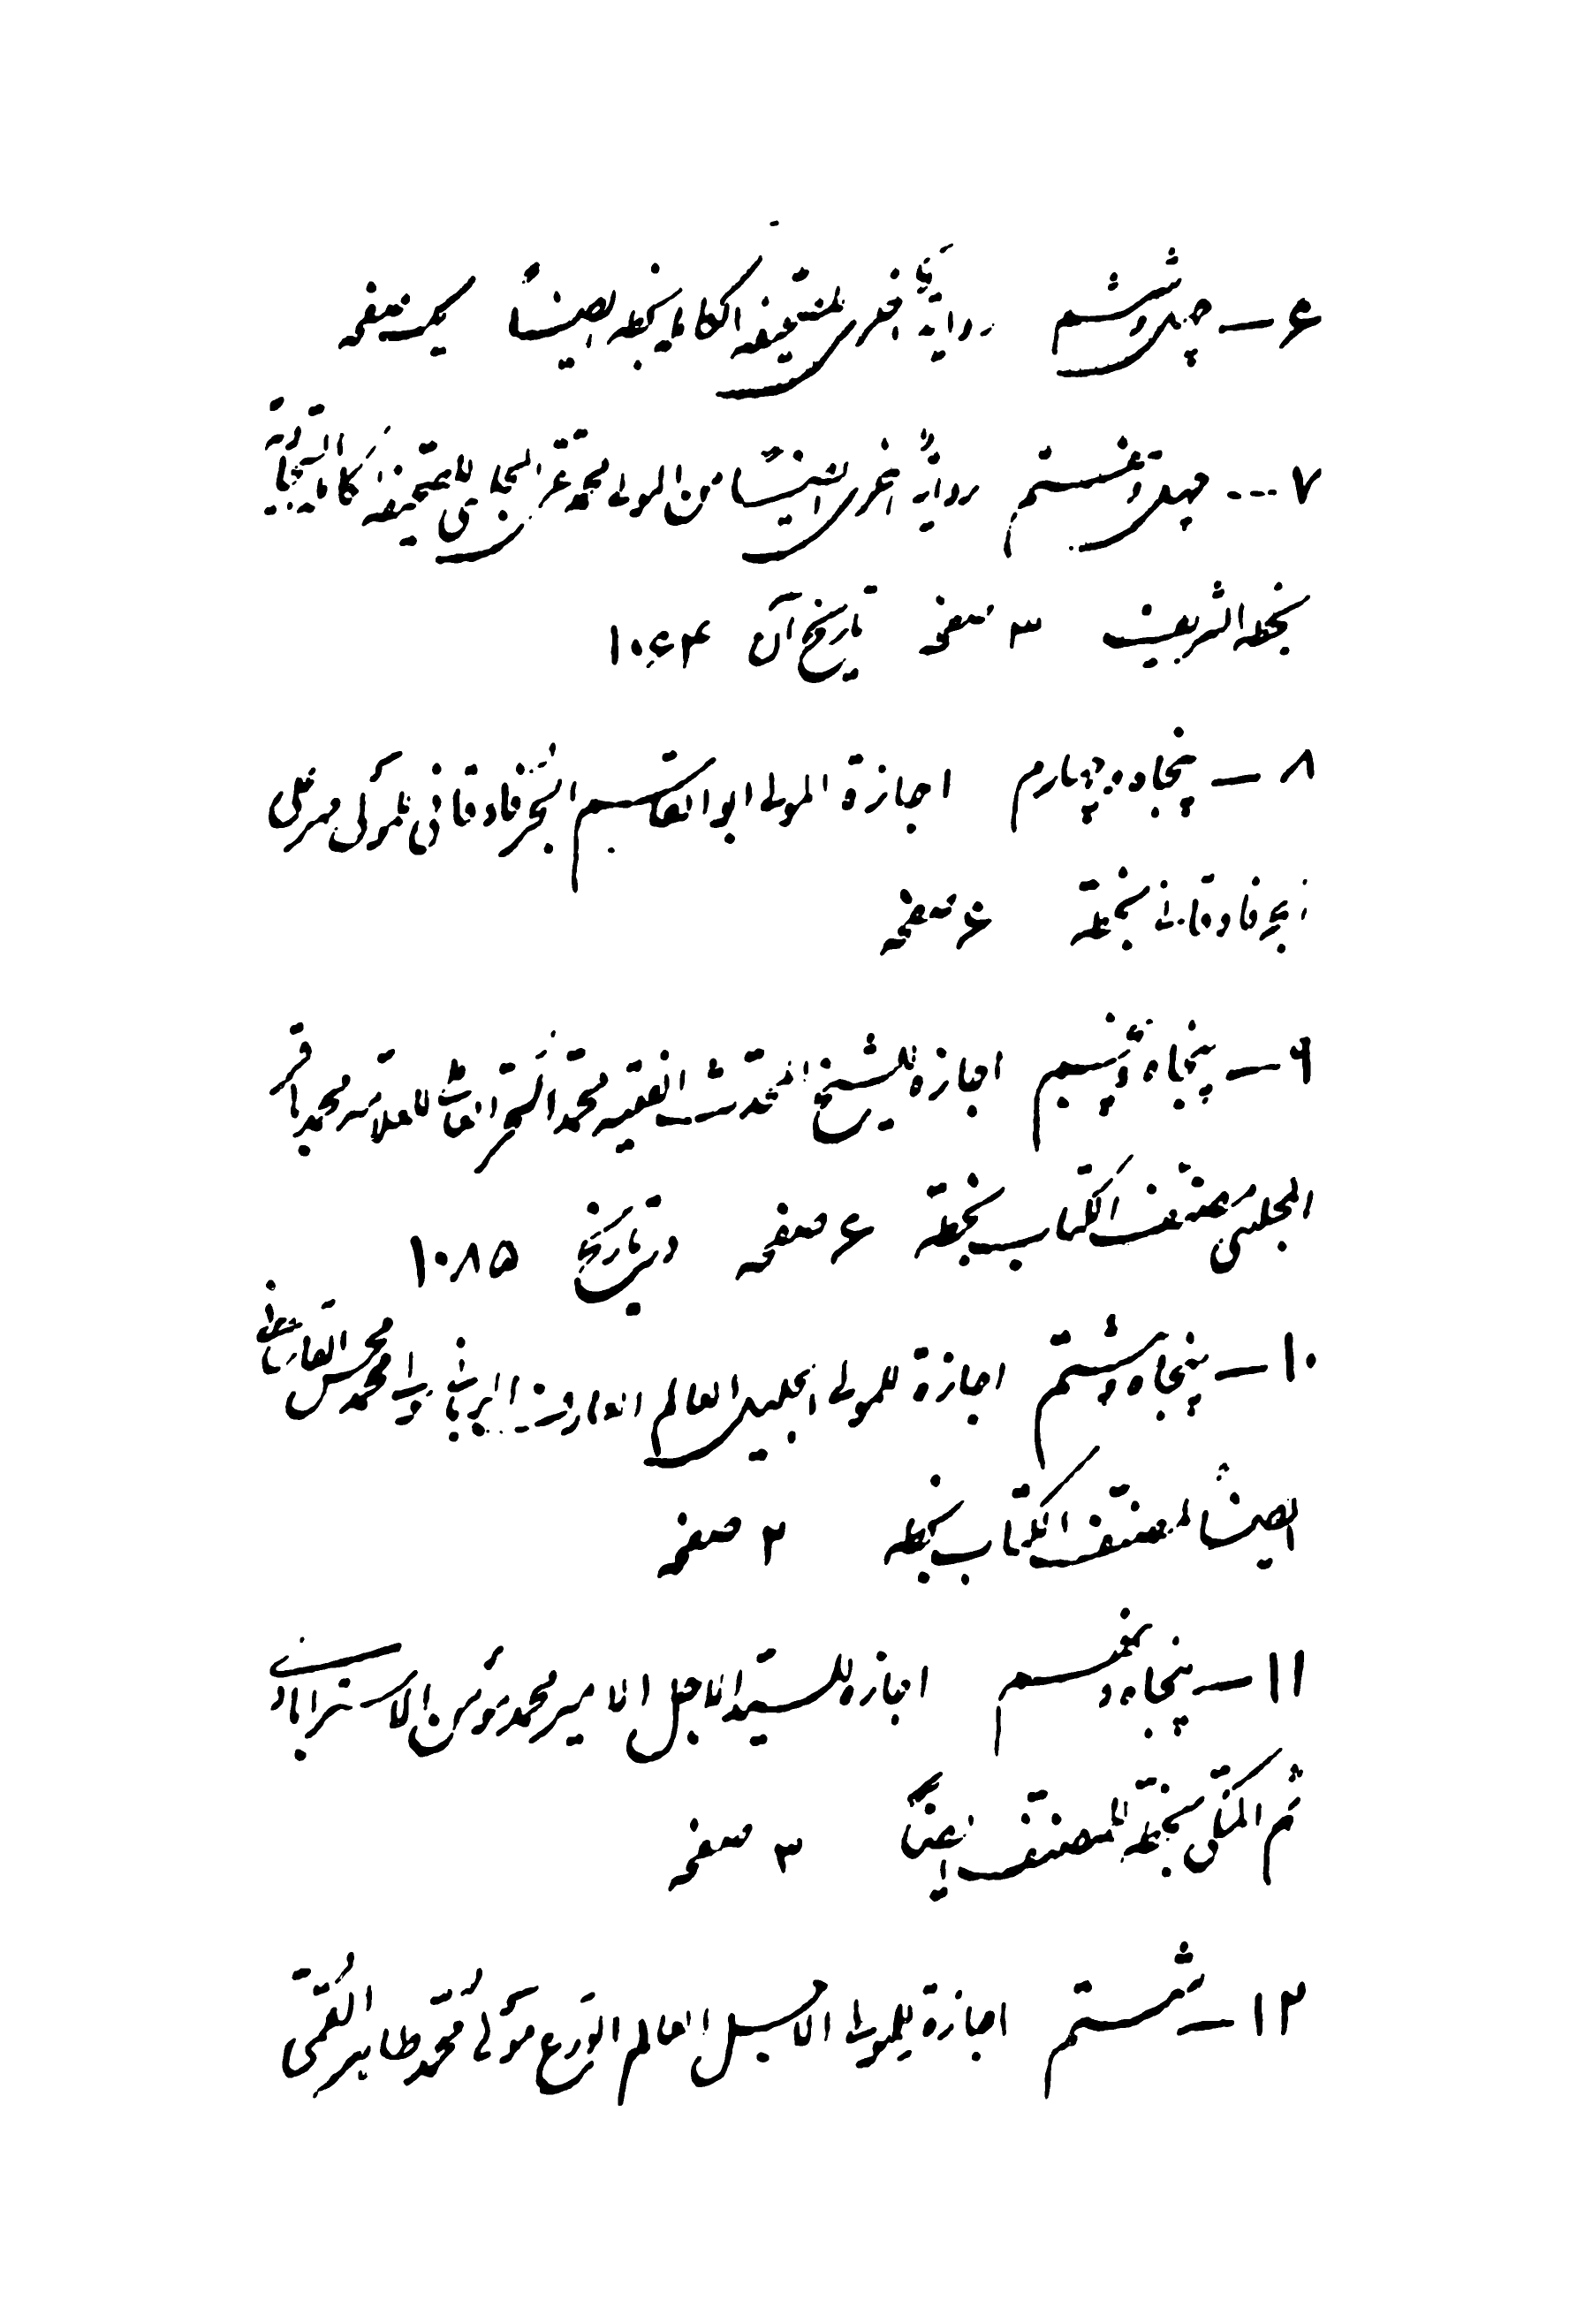 ۶ – چهل و ششم روایة أخری للصحیفة الکاملة بخطه ایضاً یک صفحه
۷ – چهل و هشتم روایة اخری ایضا من المولی محمد تقی المجلسی للصحیفة الکاملة السجادیة
بخطه الشریف ۳ صفحه تاریخ آن ۱۰۶۴
۸ – پنجاه و چهارم اجازة المولی ابو القاسم الجرفادقانی لمولی مهر علی
الجرفادقانی بخطه ۶ صفحه
۹ – پنجاه و پنجم اجازه للشیخ المحدث الفقیه محمد الحر العاملی للعلامة محمد باقر
المجلسی مصنف الکتاب بخطه ۶ صفحه در تاریخ ۱۰۸۵
۱۰ – پنجاه و هشتم اجازة للمولی الجلیل العالم العارف الربانی مولی محمد محسن القاسانی
ایضا لمصنف الکتاب بخطه ۲ صفحه
۱۱ – پنجاه و نهم اجازه للسید الاجل الامیر محمد مؤمن الاسترابادی
ثم المکی بخطه للمصنف ایضاً ۳ صفحه
۱۲ – شصتم اجازة للمولی الاجل العالم الورع مولی محمد طاهر القمی